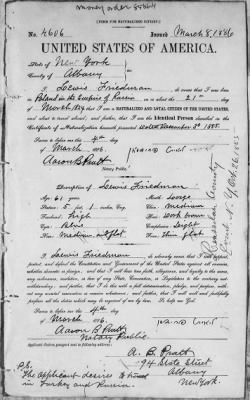 money order 85864
[FORM FOR NATURALIZED CITIZEN.]
No. 4606 Issued March 8, 1886
UNITED STATES OF AMERICA.
State of New York
County of Albany
I Lewis Friedman, do swear that I was born
in Poland in the Empire of Russia on or about the 21st day
of March, that I am a NATURALIZED AND LOYAL CITIZEN OF THE UNITED STATES,
and about to travel abroad; and further, that I am the Identical Person described in the
Certificate of Naturalization herewith presented dated December 8th 1855.
Sworn to before me this 4th day
of March 1886.
Aaron B. Pratt
Notary Public.
Description of Lewis Friedman
Age: 61 years Mouth: Large
Stature: 5 feet, 1 inches, Eng. Chin: medium
Forehead: high Hair:
Eyes: Blue Complexion: Light
Nose: Medium Face: thin
I Lewis Friedman, do solemnly swear that I will support,
protect, and defend the Constitution and Government of the United States against all enemies,
whether domestic or foreign; and that I will bear true faith, allegiance, and loyalty to the same,
any ordinance, resolution, or law of any State, Convention, or Legislature to the contrary not-
withstanding; and further, that I do this with a full determination, pledge, and purpose, with-
out any mental reservation or evasion whatsoever; and further, that I will well and faithfully
perform all the duties which may be required of me by law. So help me God.
Sworn to before me this 4th day
of March 1886.
Aaron B. Pratt
Notary Public.
A. B. Pratt
94 State Street
Albany
New York.
P.S.
The applicant desires to travel
in Turkey and Russia.
Rensselaer County